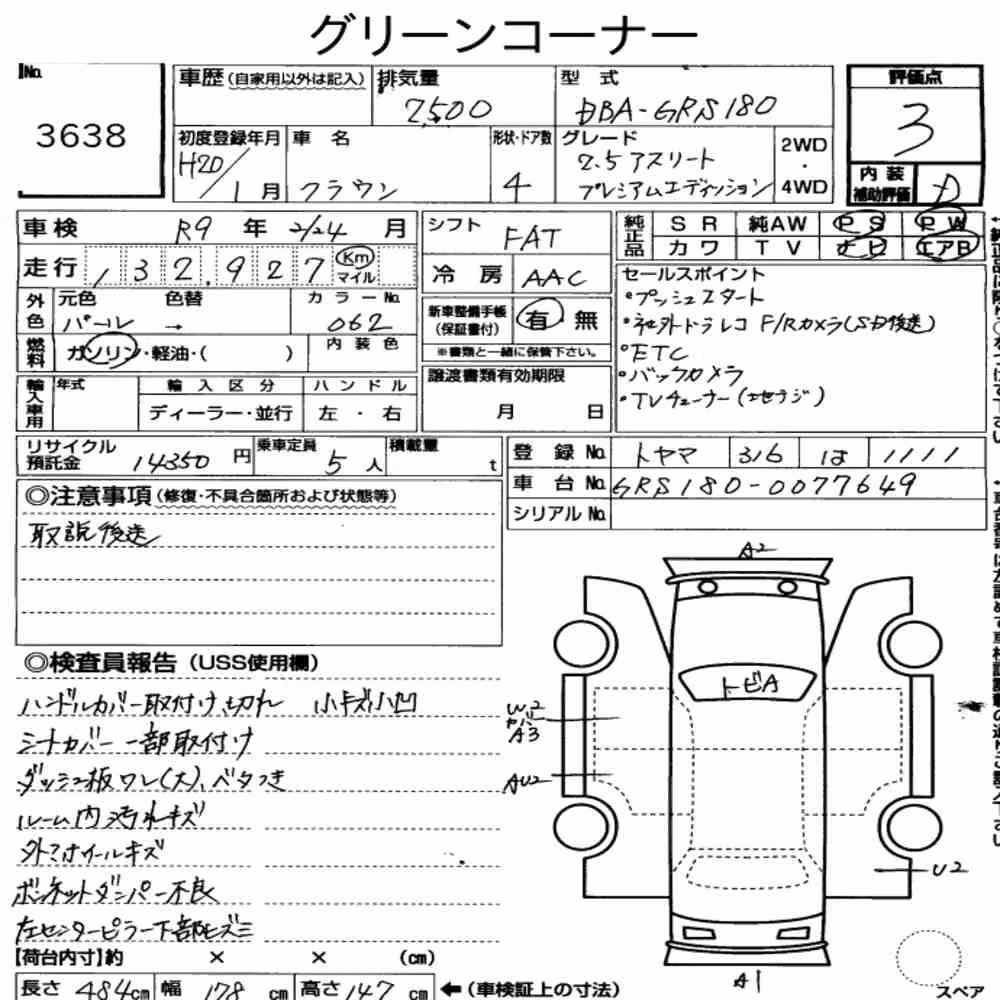 グリーンコーナー
No.
3638
車歴(自家用以外は記入)
排気量
2,500
型式
DBA-GRS180
評価点
3
初度登録年月
H20/1月
車名
クラウン
形状・ドア数
4
グレード
2.5アスリート
プレミアムエディション
2WD
・
4WD
内装
補助評価
D
車検
R9年2/24月
シフト
FAT
純正品
SR 純AW PS PW
カワ TV ナビ エアB
走行
132,927
Km
マイル
冷房
AAC
セールスポイント
・プッシュスタート
・社外ドラレコ F/Rカメラ(SD後送)
・ETC
・バックカメラ
外色
元色 色替 カラーNo.
パール → 062
新車整備手帳
(保証書付)
有 無
※書類と一緒に保管下さい。
燃料
ガソリン・軽油・( )
内装色
輸入車用
年式 輸入区分 ハンドル
ディーラー・並行 左・右
譲渡書類有効期限
月 日
リサイクル
預託金
14350円
乗車定員
5人
積載量
t
登録No. トヤマ 316 は 1111
車台No. GRS180-0077649
シリアルNo.
◎注意事項(修復・不具合箇所および状態等)
取説後送
◎検査員報告(USS使用欄)
ハンドルカバー取付け、切れ 小キズ小凹
シートカバー一部取付け
ダッシュ板ワレ(大)、ベタつき
ルーム内汚れキズ
外アホイールキズ
ボンネットダンパー不良
左センターピラー下部ヒズミ
A2
トビA
W2
カバー
A3
AU2
U2
A1
スペア
【荷台内寸】約 × × (cm)
長さ 484cm 幅 178cm 高さ 147cm
←(車検証上の寸法)